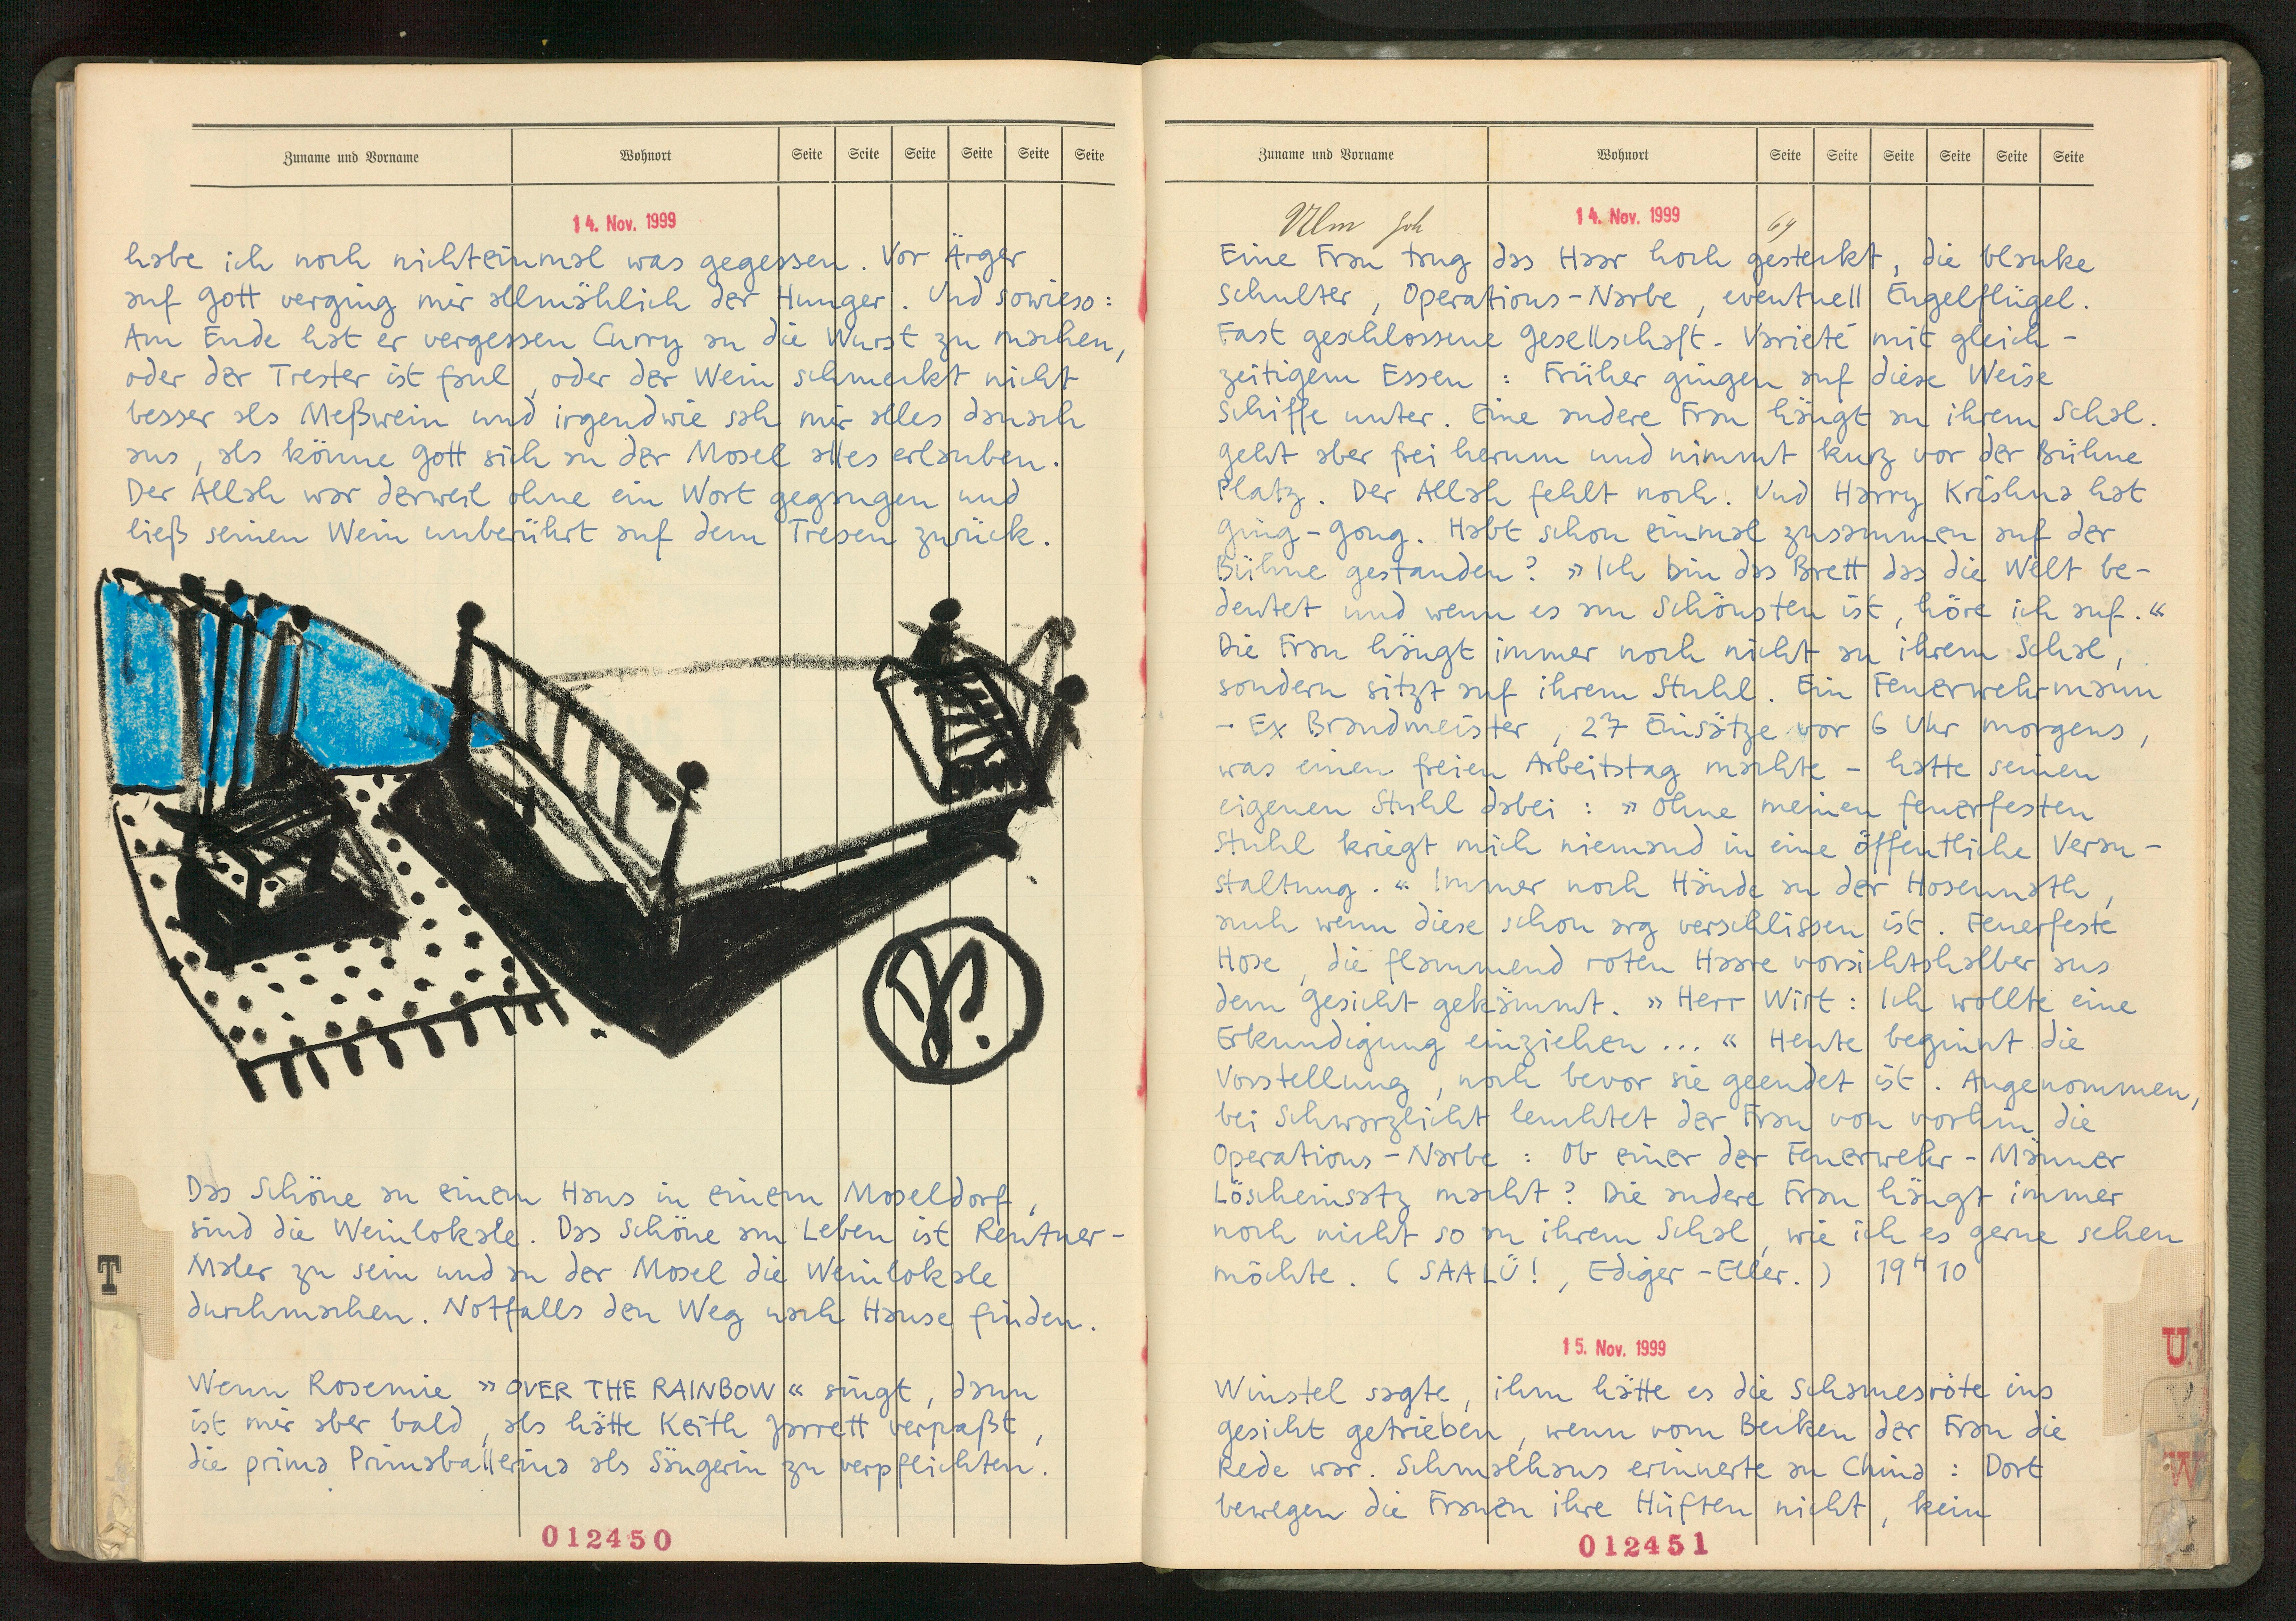 Zuname und Vorname Wohnort Seite Seite Seite Seite Seite Seite
14. Nov. 1999
habe ich noch nichteinmal was gegessen. Vor Ärger
auf Gott verging mir allmählich der Hunger. Und sowieso:
Am Ende hat er vergessen Curry an die Wurst zu machen,
oder der Trester ist faul, oder der Wein schmeckt nicht
besser als Meßwein und irgendwie sah mir alles danach
aus, als könne Gott sich an der Mosel alles erlauben.
Der Allah war derweil ohne ein Wort gegangen und
ließ seinen Wein unberührt auf dem Tresen zurück.
Das Schöne an einem Haus in einem Moseldorf,
sind die Weinlokale. Das Schöne am Leben ist Rentner-
Maler zu sein und an der Mosel die Weinlokale
durchmachen. Notfalls den Weg nach Hause finden.
Wenn Rosemie »OVER THE RAINBOW« singt, dann
ist mir aber bald, als hätte Keith Jarrett verpaßt,
die prima Primaballerina als Sängerin zu verpflichten.
012450
T
Zuname und Vorname Wohnort Seite Seite Seite Seite Seite Seite
Ulm Joh 69
14. Nov. 1999
Eine Frau trug das Haar hoch gesteckt, die blanke
Schulter, Operations-Narbe, eventuell Engelflügel.
Fast geschlossene Gesellschaft. Varieté mit gleich-
zeitigem Essen: Früher gingen auf diese Weise
Schiffe unter. Eine andere Frau hängt an ihrem Schal.
Geht aber frei herum und nimmt kurz vor der Bühne
Platz. Der Allah fehlt noch. Und Harry Krishna hat
Ging-Gong. Habt schon einmal zusammen auf der
Bühne gestanden? »Ich bin das Brett das die Welt be-
deutet und wenn es am Schönsten ist, höre ich auf.«
Die Frau hängt immer noch nicht an ihrem Schal,
sondern sitzt auf ihrem Stuhl. Ein Feuerwehrmann
- Ex Brandmeister, 27 Einsätze vor 6 Uhr morgens,
was einen freien Arbeitstag machte - hatte seinen
eigenen Stuhl dabei: »Ohne meinen feuerfesten
Stuhl kriegt mich niemand in eine öffentliche Veran-
staltung.« Immer noch Hände an der Hosennath,
auch wenn diese schon arg verschlissen ist. Feuerfeste
Hose, die flammend roten Haare vorsichtshalber aus
dem Gesicht gekämmt. »Herr Wirt: Ich wollte eine
Erkundigung einziehen...« Heute beginnt die
Vorstellung, noch bevor sie geendet ist. Angenommen,
bei Schwarzlicht leuchtet der Frau von vorhin die
Operations-Narbe: Ob einer der Feuerwehr-Männer
Löscheinsatz macht? Die andere Frau hängt immer
noch nicht so an ihrem Schal, wie ich es gerne sehen
möchte. (SAALÜ!, Ediger-Eller.) 19H10
15. Nov. 1999
Winstel sagte, ihm hätte es die Schamesröte ins
Gesicht getrieben, wenn vom Becken der Frau die
Rede war. Schmalhaus erinnerte an China: Dort
bewegen die Frauen ihre Hüften nicht, kein
012451
U
W